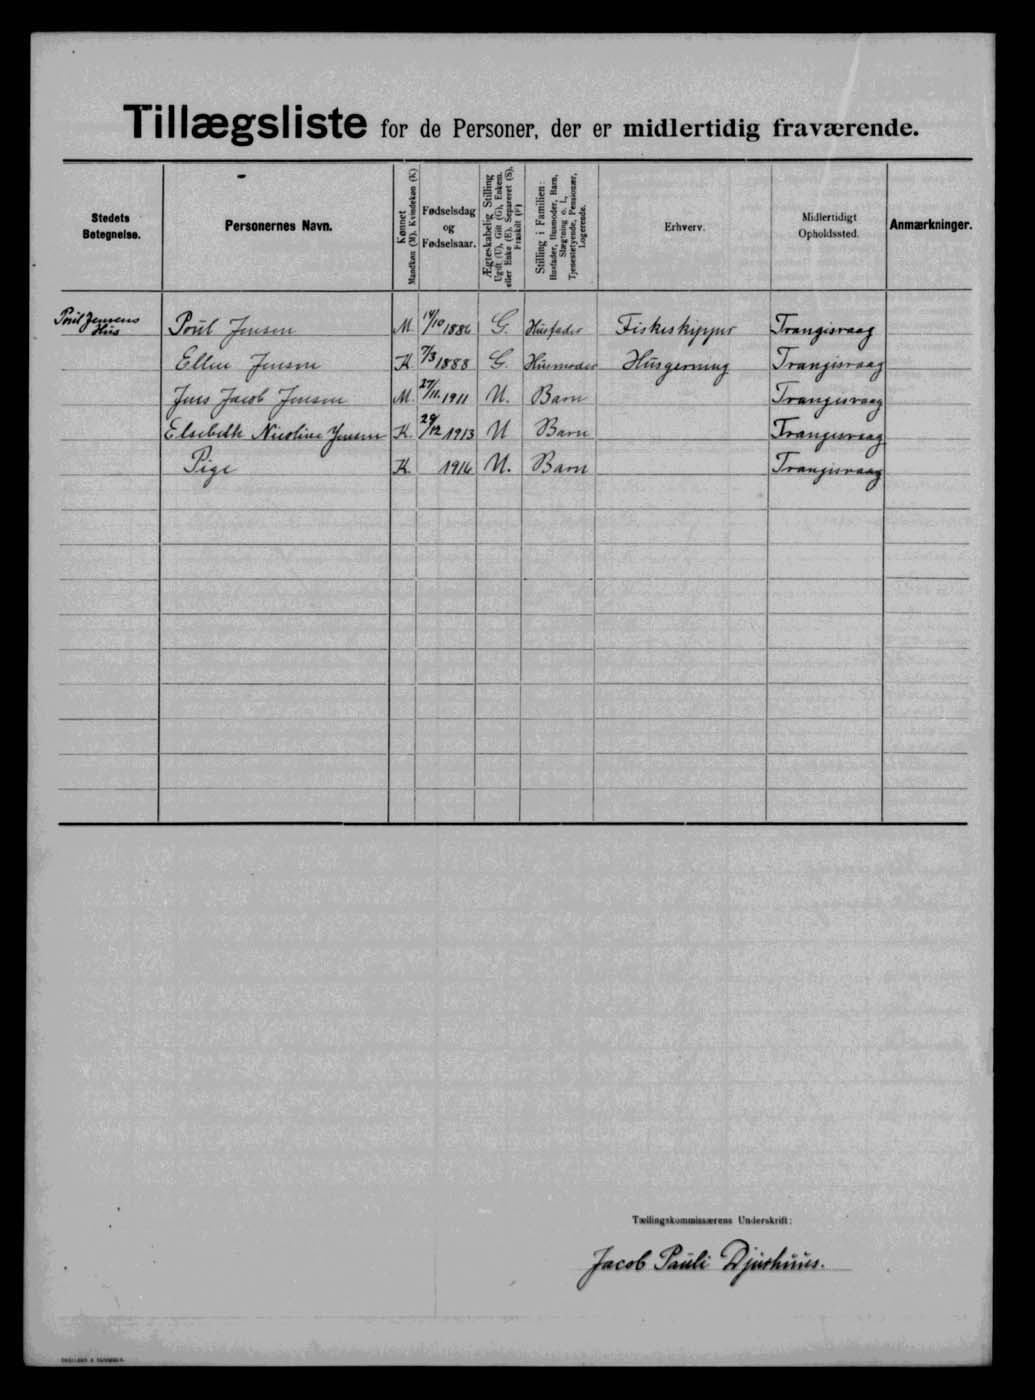 Tillægsliste for de Personer, der er midlertidig fraværende.
Stedets Betegnelse. | Personernes Navn. | Kønnet Mandkøn (M). Kvindekøn (K) | Fødselsdag og Fødselsaar. | Ægteskabelig Stilling Ugift (U), Gift (G), Enkem. eller Enke (E), Separeret (S), Fraskilt (F) | Stilling i Familien: Husfader, Husmoder, Barn, Slægtning o. l., Tjenestetyende, Pensionær, Logerende. | Erhverv. | Midlertidigt Opholdssted. | Anmærkninger.
Poül Jensens Hus | Poül Jensen | M. | 14/10 1886 | G. | Husfader | Fiskeskipper | Trangisvaag
Ellen Jensen | K. | 7/3 1888 | G. | Husmoder | Husgerning | Trangisvaag
Jens Jacob Jensen | M. | 27/11. 1911 | U. | Barn | Trangisvaag
Elsebeth Nicoline Jensen | K. | 29/12 1913 | U | Barn | Trangisvaag
Pige | K. | 1916 | U. | Barn | Trangisvaag
Tællingskommissærens Underskrift:
Jacob Pauli Djurhuus.